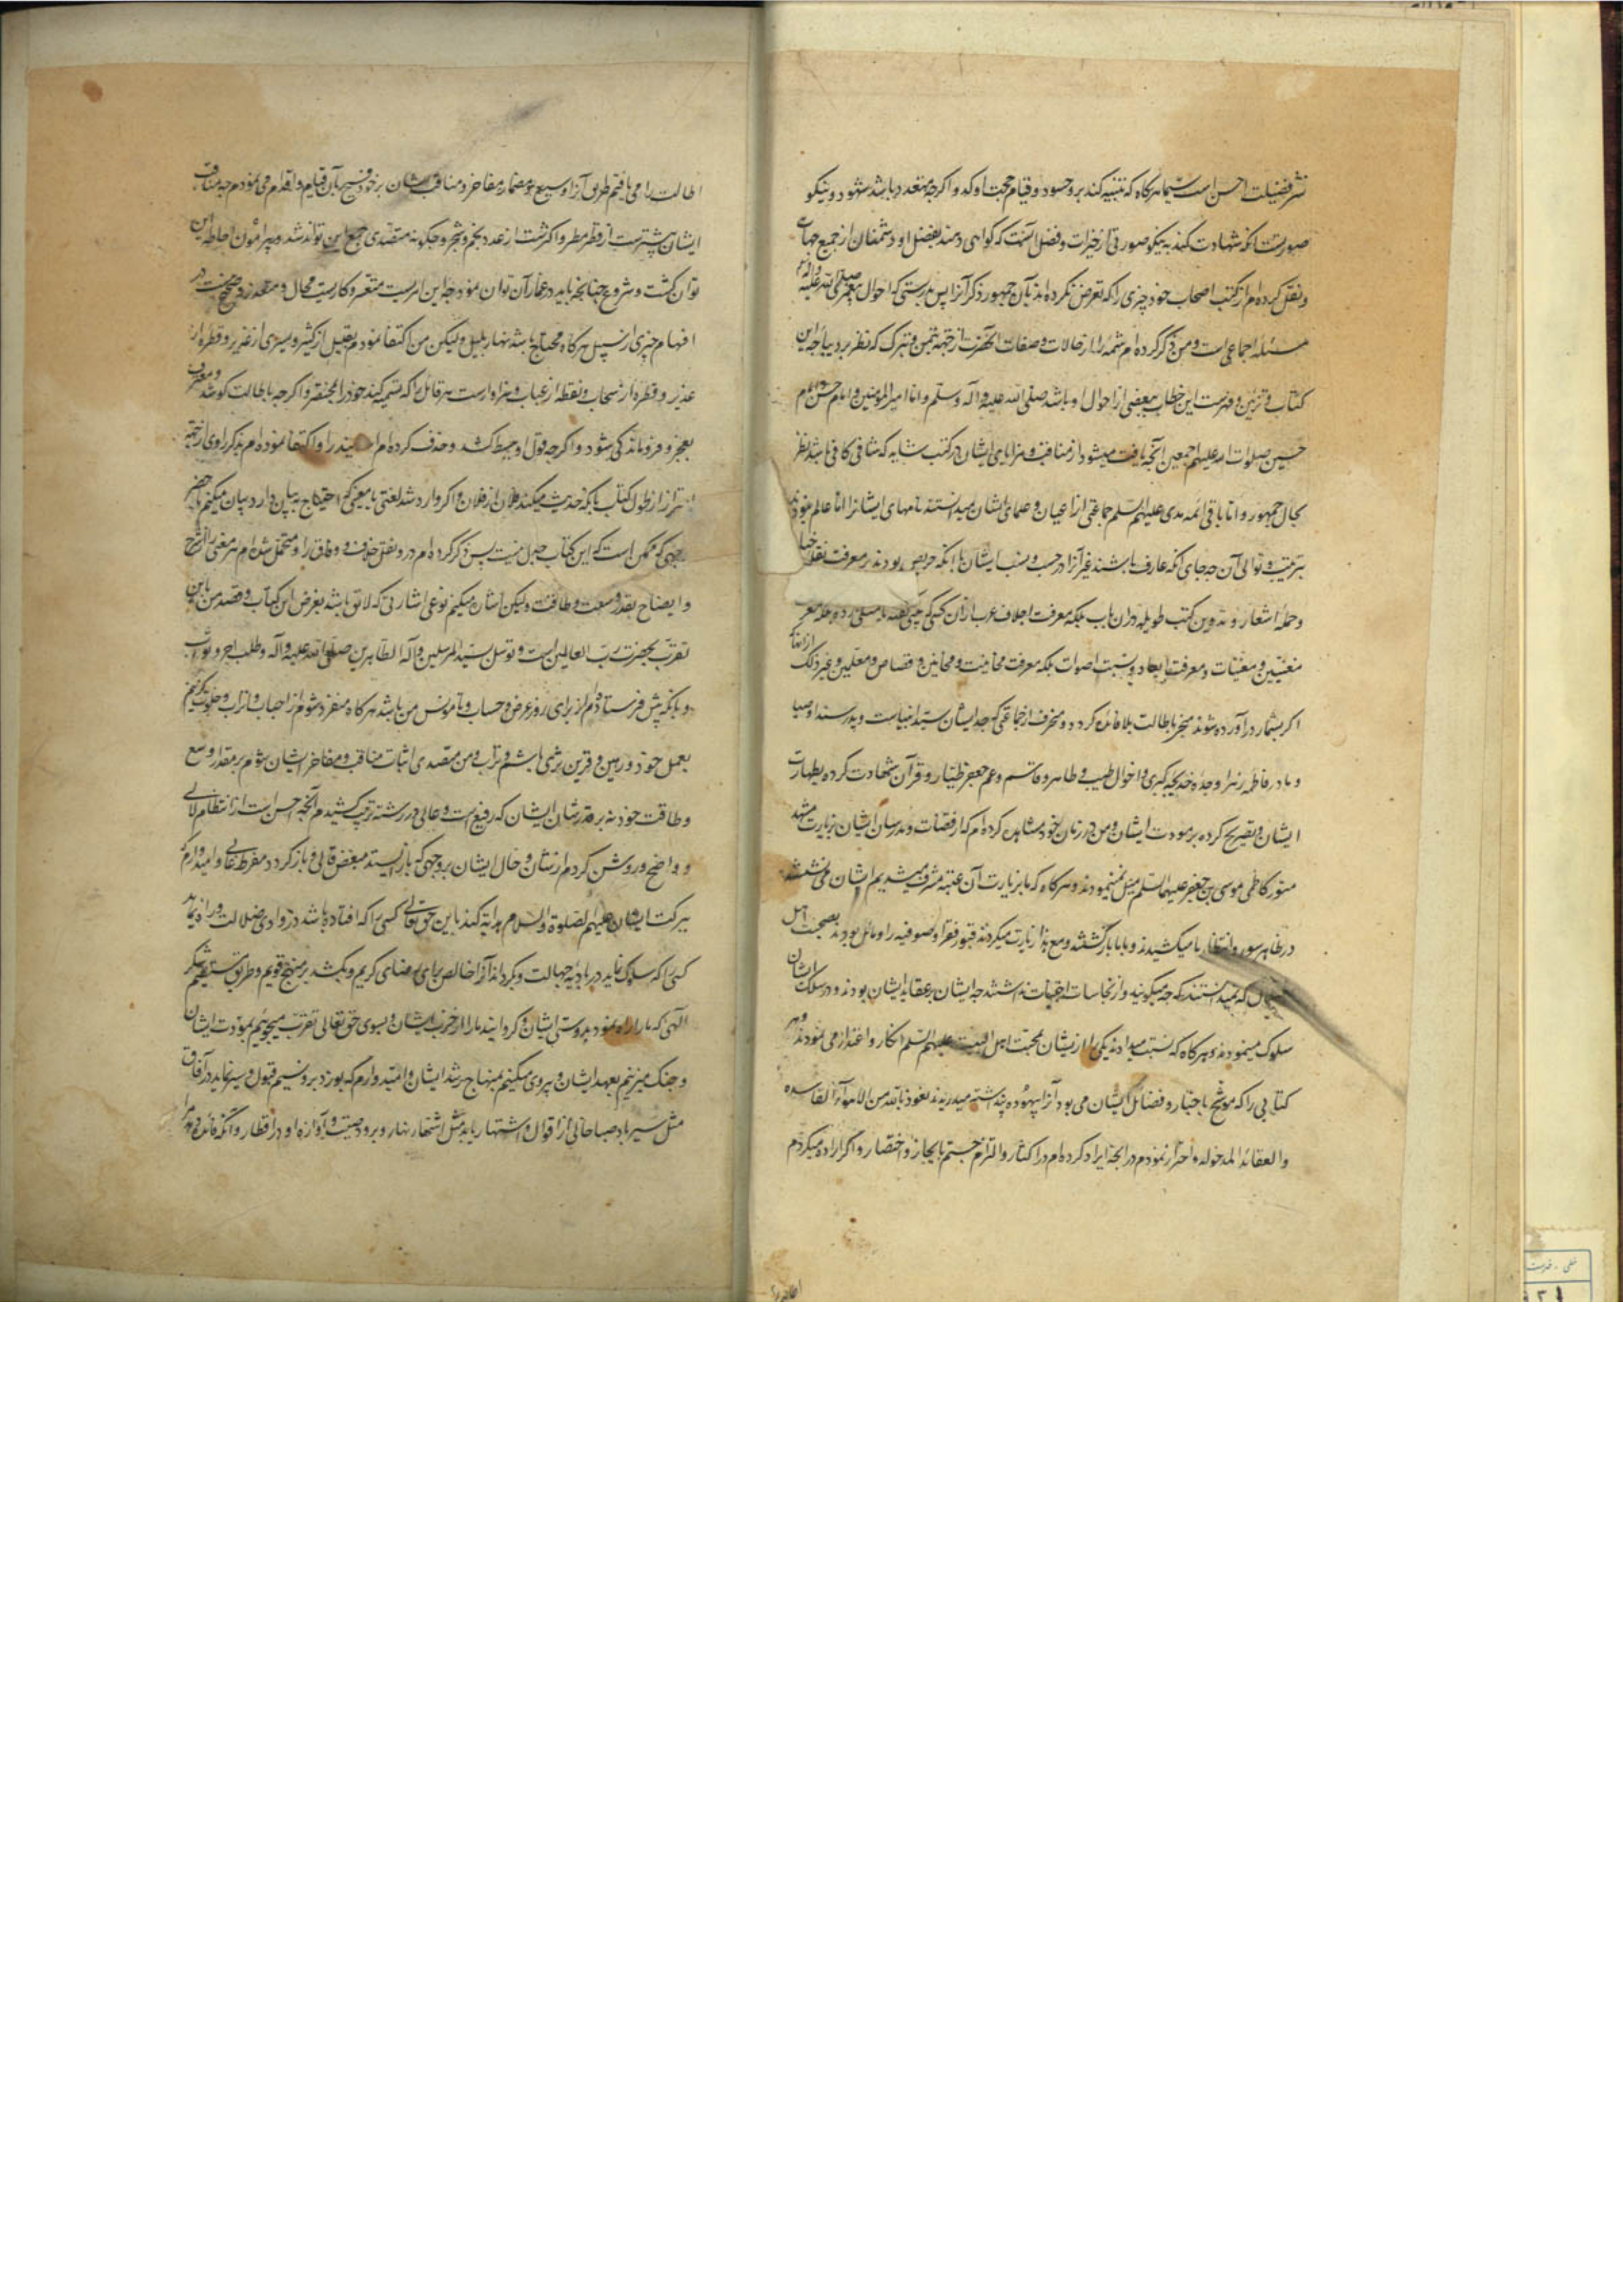 نشر فضیلت احسن است سیما هرکاه که تنبیه کند بر وجسود و قیام حجت اوکد و اکرچه متعدد باشد شهود و نیکو
صورت آنکه شهادت کنند به نیکو صورتی از خیرات و فضل آنست که کواهی دهند بفضل او دشمنان از جمیع جهات
و نقل کرده ام از کتب اصحاب خود چیزی را که تعرض نکرده اند بآن جمهور ذکر آنرا پس بدرستی که احوال پیغمبر صلی الله علیه وآله
مسئله اجماعی است و من ذکر کرده ام شمه را از حالات و صفات آنحضرت از جهة تیمن و تبرک که نظر بر دیباجه این
کتاب و تزیین و فهرست این خطاب ببعضی از احوال او باشد صلی الله علیه وآله وسلم و اما امیر المؤمنین و امام حسن و امام
حسین صلوات الله علیهم اجمعین آنچه یافت میشود از مناقب و مزایای ایشان در کتب شایه که شافی کافی باشد نظر
بحال جمهور و اما باقی ائمه هدی علیهم السلم جماعتی از اعیان و علمای ایشان نمیدانستند نامهای ایشانرا اما عالم نبودند
بترتیب و توالی آن چه جای آنکه عارف باشند غیر آنرا در حسب و نسب ایشان با آنکه حریص بودند بر معرفت نقل اخبار
و حمل اشعار و تدوین کتب طویله در ان باب بلکه معرفت اجلاف عرب از آن کسی که
مغنیین و مغنیات و معرفت ابعاد و نسبت اصوات بلکه معرفت مخانیث و مجانین و قصاص و معلمین و غیر ذلک از آنها که
اکر بشمار در آورده شوند منجر باطالت بلا فائده کردد و منحرف از جماعتی که جد ایشان سید انبیاست و پدر سند اوصیا
و مادر فاطمه زهرا و جده خدیجه کبری و اخوال طیب و طاهر و قاسم و عم جعفر طیار و قرآن شهادت کرده بطهارت
ایشان و تصریح کرده بر مودت ایشان و من در زمان خود مشاهده کرده ام که از قضات و مدرسان ایشان بزیارت مشهد
منور کاظمی موسی بن جعفر علیهما السلم میل نمینمودند و هرکاه که ما بزیارت آن عتبه مشرف میشدیم ایشان می نشستند
در ظاهر سور و انتظار ما میکشیدند و با ما باز کشتند و مع هذا زیارت میکردند قبور فقرا و صوفیه را و مائل بودند بصحبت اهل
که نمیدانستند که چه میکویند و از نجاسات اجتناب نداشتند چه ایشان بر عقاید ایشان بودند و در سلک ایشان
سلوک مینمودند و هرکاه که نسبت میدادند یکی را از یشان بمحبت اهل البیت علیهم السلم انکار و اعتذار می نمودند و هر
کتابی را که موشح باخبار و فضائل ایشان می بود آنرا بیهوده پنداشته میدریدند نعوذ بالله من الاهواء الفاسده
والعقائد المدخوله و احتراز نمودم در آنچه ایراد کرده ام در اکثار و التزام جستم بایجاز و اختصار و اکر اراده میکردم
اطالت را
اطالت را می یافتم طریق آنرا وسیع و مضمار مفاخر و مناقب ایشان بر خود فسیح بآن قیام و اقدام می نمودم چه مناقب
ایشان بیشترست از قطر مطر و اکثرست از عدد نجم و شجر و چکونه متصدی جمع این تواند شد و پیرامون احاطه این
توان کشت و شروع چنانچه باید در غمار آن توان نمود چه این امریست متعسر و کاریست محال و متعذر و صحیح نیست در
افهام چیزی از سپس هرکاه محتاج باشد نهار بدلیل ولیکن من اکتفا نمودم بقلیل از کثیر و یسیری از غزیر و قطره از
غدیر و قطره از سحاب و نقطه از عباب و سزاوارست هر قائل را که تسمیه کند خود را بمختصر و اکرچه باطالت کوشد و معترف
بعجز و فروماندکی شود و اکرچه قول او مبسط کشد و حذف کرده ام اسانید را و اکتفا نموده ام بذکر راوی از جهة
احتراز از طول کتاب بآنکه حدیث میکند فلان از فلان و اکر وارد شد لغتی یا معنی که احتیاج به بیان دارد بیان میکنم باخصر
وجهی که ممکن است که این کتاب جدل نیست پس ذکر کرده ام در و نقل خلاف و وفاق را و متحمل شده ام هر معنی را از شرح
و ایضاح بقدر وسعت و طاقت ولیکن اشارت میکنم نوعی اشارتی که لائق باشد بغرض این کتاب و قصد من باین
تقرب بحضرت رب العالمین است و توسل بسید المرسلین و آله الطاهرین صلوات الله علیه وآله و طلب اجر و ثواب
و بآنکه پیش فرستاده ام از برای روز عرض و حساب و تا مونس من باشد هرکاه منفرد شوم از احباب و اتراب و خلوت کزینم
بعمل خود و رهین و قرین ثری باشم و تراب و من متصدی اثبات مناقب و مفاخر ایشان شوم بر مقدار وسع
و طاقت خود نه بر قدر شان ایشان که رفیع است و عالی و در رشته ترتیب کشیدم آنچه احسن است از انتظام لآلی
و واضح و روشن کردم از شان و حال ایشان بر وجهی که بازایستد مبغض قالی و باز کردد مفرط غالی و امیدوارم که
ببرکت ایشان علیهم الصلوة والسلام هدایه کند باین حق تعالی کسی را که افتاده باشد در وادی ضلالت و راه نماید
کسی را که سلوک نماید در بادیه جهالت و کرداند آنرا خالص برای رضای کریم و بکشد بر منهج قویم و طریق مستقیم بشکر
الهی که ما را راه نمود بدوستی ایشان و کردانید ما را از حزب ایشان و بسوی حق تعالی تقرب میجوئیم بمودت ایشان
و چنک میزنیم بعهد ایشان و پیروی میکنیم بمنهاج رشد ایشان و امیدوارم که بوزد برو نسیم قبول و سیر نماید در آفاق
مثل سیر باد صبا خالی از اقوال و اشتهار یابد مثل اشتهار نهار و برود صیت و آوازه او در اقطار و آنکه فائده دهد مرا